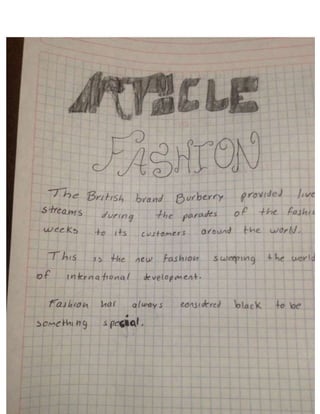 ARTICLE
FASHION
The British brand Burberry provided live
streams during the parades of the fashi
weeks to its customers around the world.
This is the new fashion sweeping the world
of international development.
Fashion has always considered black to be
something special.